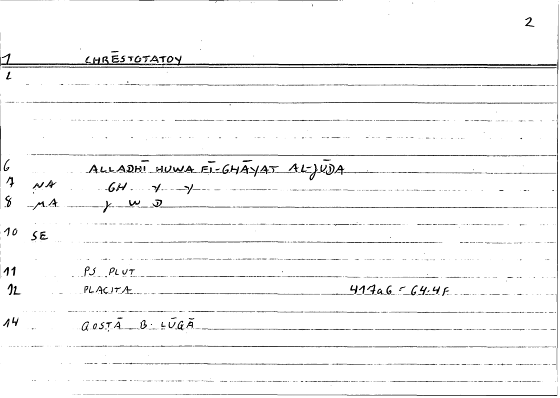 2
1 CHRĒSTOTATOY
2
6 ALLADHĪ HUWA FĪ-GHĀYAT AL-JŪDA
7 NA GH Y Y
8 MA J W D
10 SE
11 PS. PLUT
12 PLACITA 417a6 = 64.4F
14 QOSṬĀ B. LŪQĀ